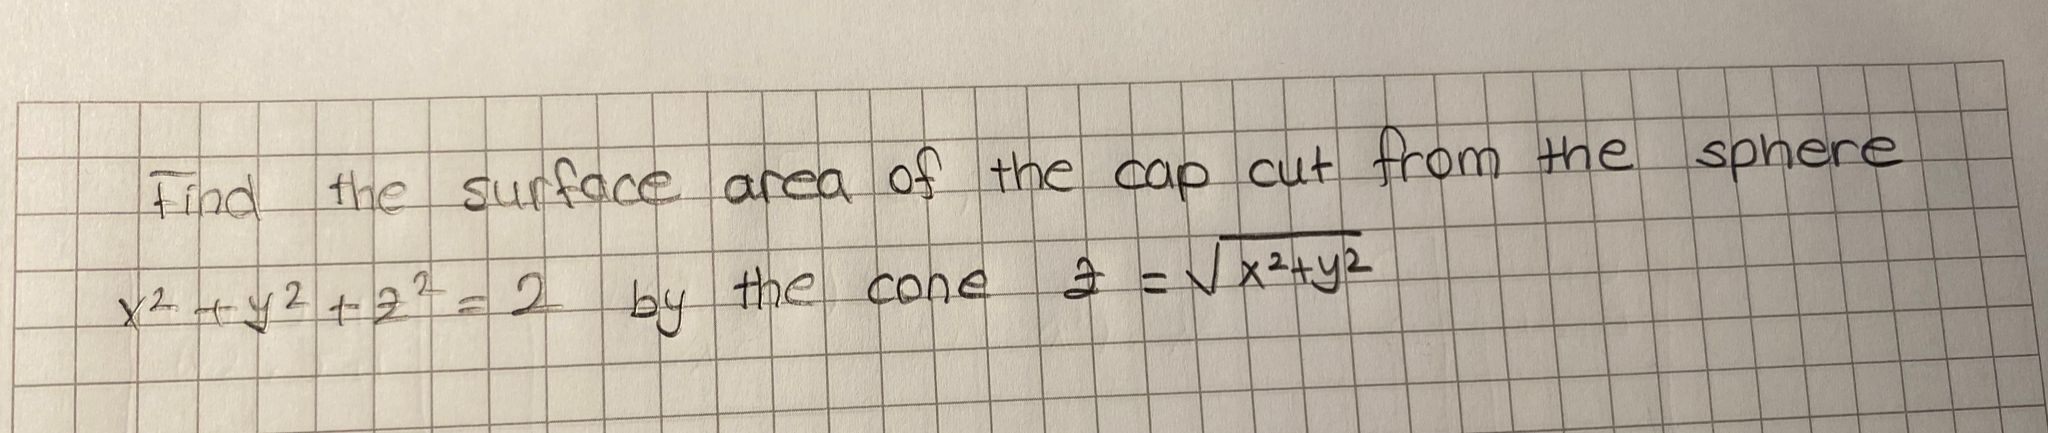 Find the surface area of the cap cut from the sphere
x² + y² + z² = 2 by the cone z = √x²+y²